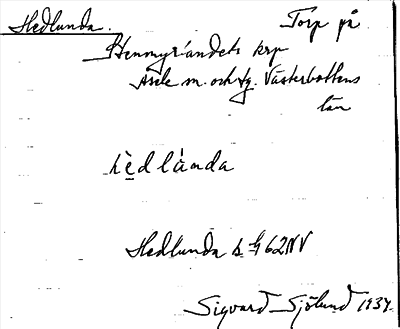 Hedlunda. Torp på
Stenmyrandets krp
Åsele m. och tg. Västerbottens
län
hèdlánda
Hedlunda h 62NV
Sigvard Sjölund 1934.